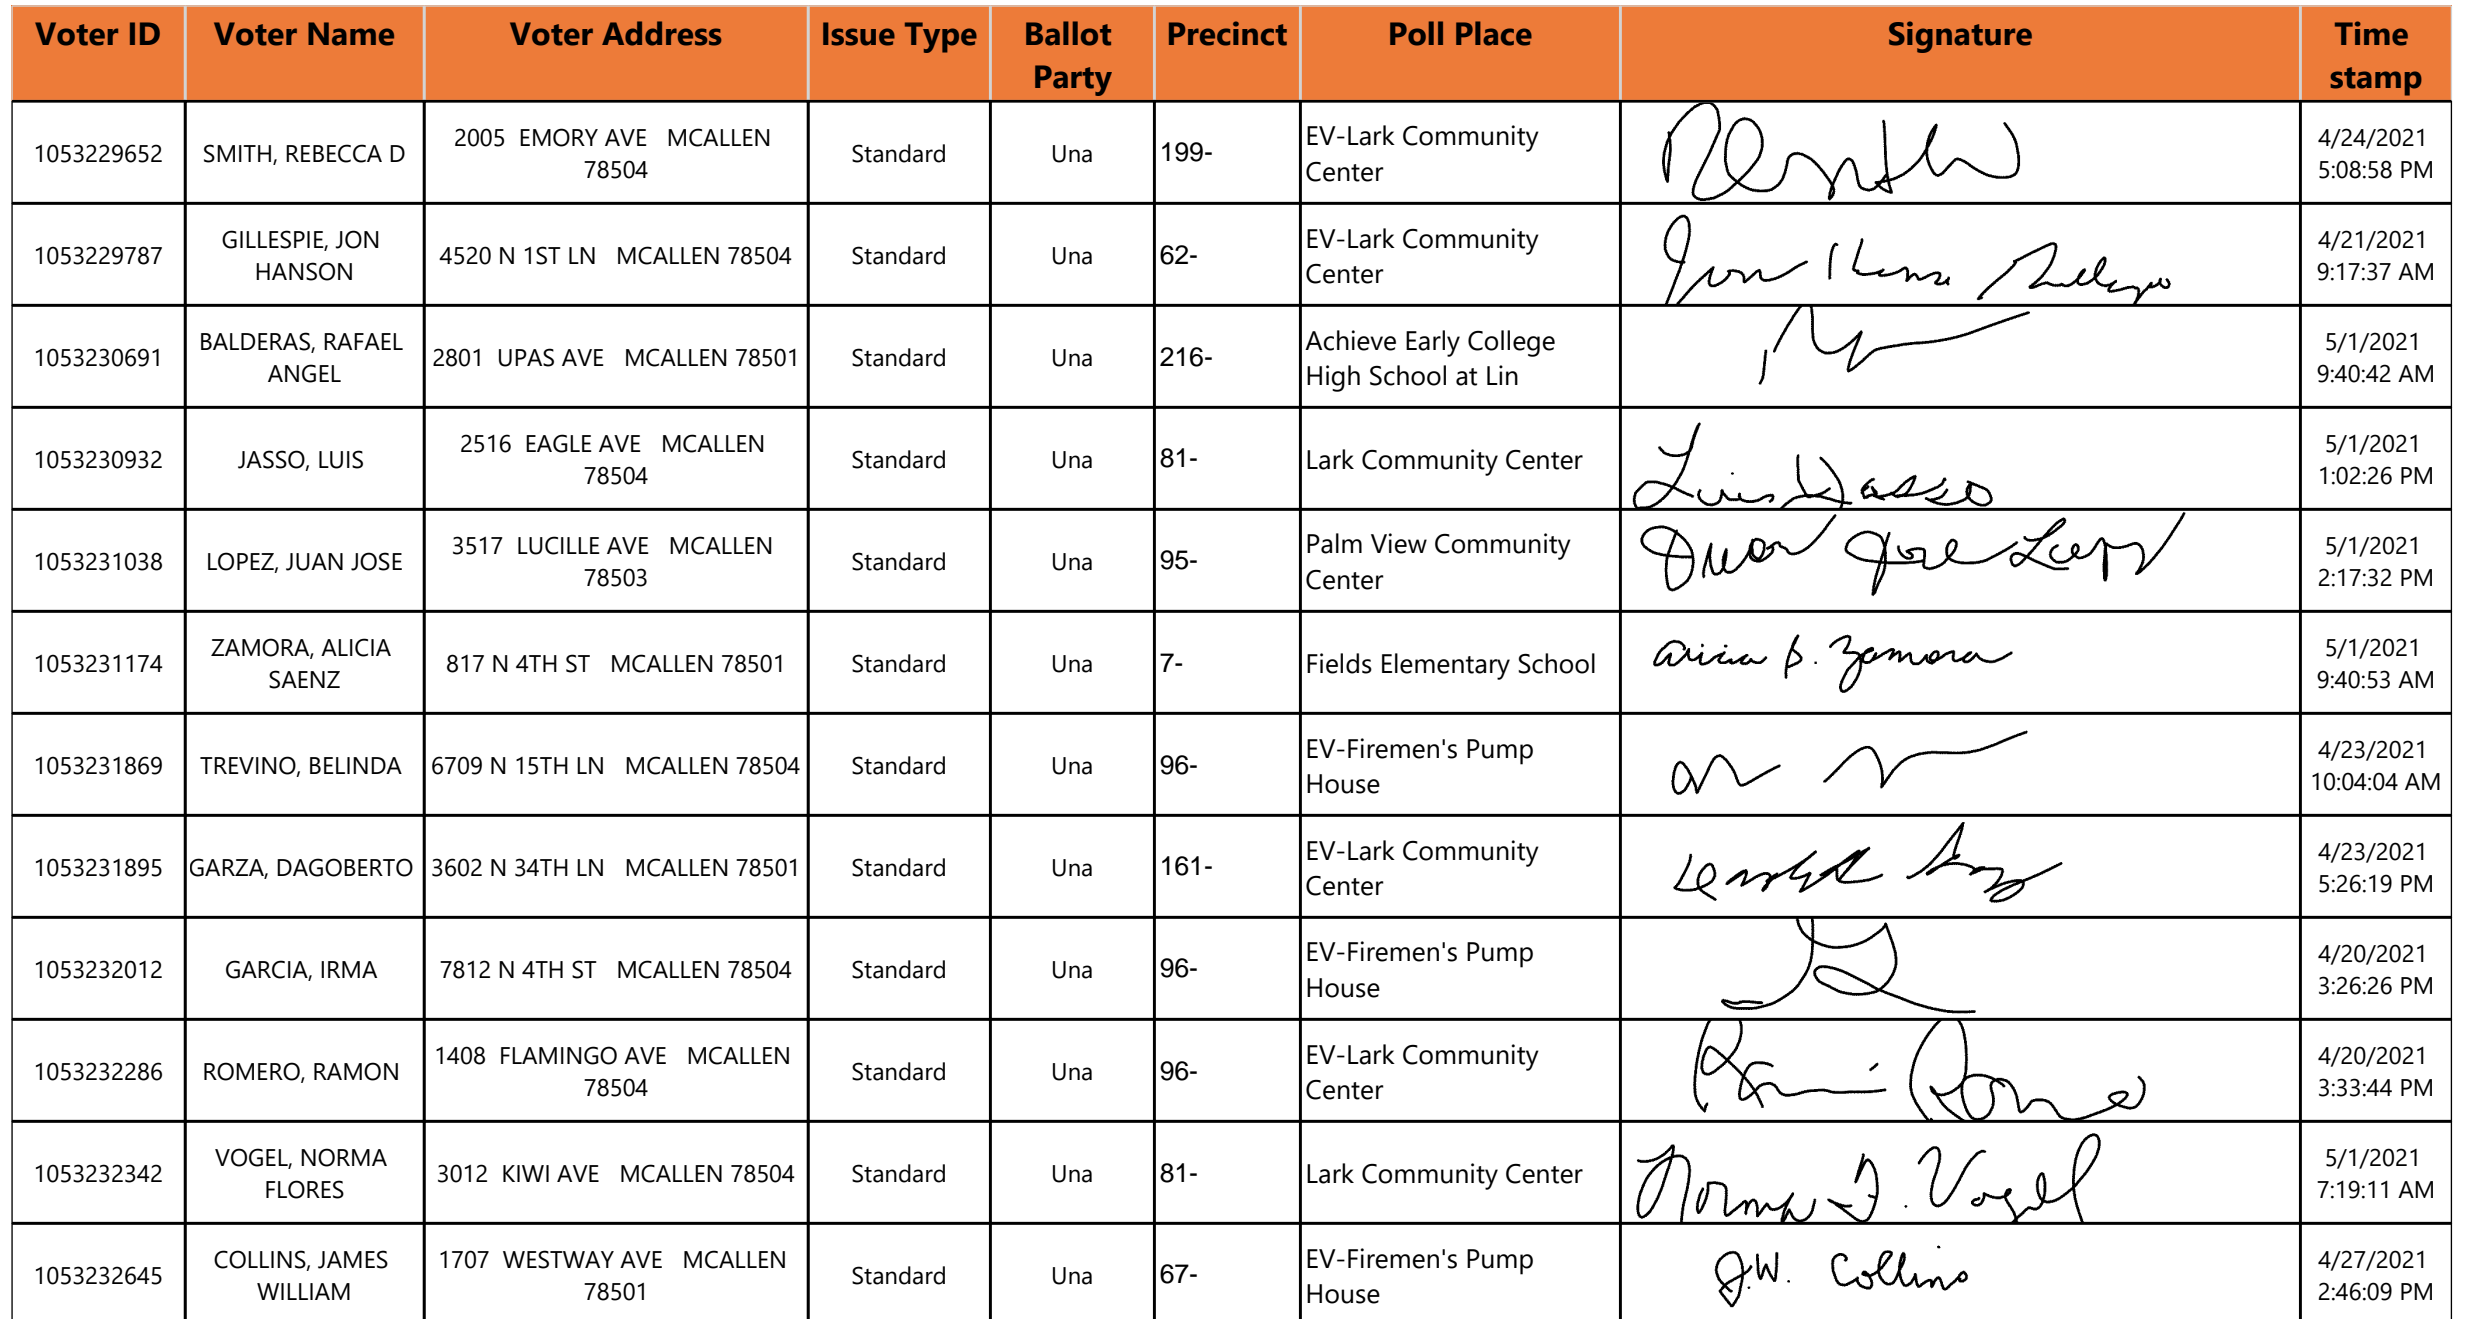 Voter ID Voter Name Voter Address Issue Type Ballot Party Precinct Poll Place Signature Time stamp
1053229652 SMITH, REBECCA D 2005 EMORY AVE MCALLEN 78504 Standard Una 199- EV-Lark Community Center 4/24/2021 5:08:58 PM
1053229787 GILLESPIE, JON HANSON 4520 N 1ST LN MCALLEN 78504 Standard Una 62- EV-Lark Community Center Jon 4/21/2021 9:17:37 AM
1053230691 BALDERAS, RAFAEL ANGEL 2801 UPAS AVE MCALLEN 78501 Standard Una 216- Achieve Early College High School at Lin 5/1/2021 9:40:42 AM
1053230932 JASSO, LUIS 2516 EAGLE AVE MCALLEN 78504 Standard Una 81- Lark Community Center Luis Jasso 5/1/2021 1:02:26 PM
1053231038 LOPEZ, JUAN JOSE 3517 LUCILLE AVE MCALLEN 78503 Standard Una 95- Palm View Community Center Juan Jose Lopez 5/1/2021 2:17:32 PM
1053231174 ZAMORA, ALICIA SAENZ 817 N 4TH ST MCALLEN 78501 Standard Una 7- Fields Elementary School Alicia S. Zamora 5/1/2021 9:40:53 AM
1053231869 TREVINO, BELINDA 6709 N 15TH LN MCALLEN 78504 Standard Una 96- EV-Firemen's Pump House 4/23/2021 10:04:04 AM
1053231895 GARZA, DAGOBERTO 3602 N 34TH LN MCALLEN 78501 Standard Una 161- EV-Lark Community Center 4/23/2021 5:26:19 PM
1053232012 GARCIA, IRMA 7812 N 4TH ST MCALLEN 78504 Standard Una 96- EV-Firemen's Pump House 4/20/2021 3:26:26 PM
1053232286 ROMERO, RAMON 1408 FLAMINGO AVE MCALLEN 78504 Standard Una 96- EV-Lark Community Center 4/20/2021 3:33:44 PM
1053232342 VOGEL, NORMA FLORES 3012 KIWI AVE MCALLEN 78504 Standard Una 81- Lark Community Center Norma F. Vogel 5/1/2021 7:19:11 AM
1053232645 COLLINS, JAMES WILLIAM 1707 WESTWAY AVE MCALLEN 78501 Standard Una 67- EV-Firemen's Pump House J.W. Collins 4/27/2021 2:46:09 PM